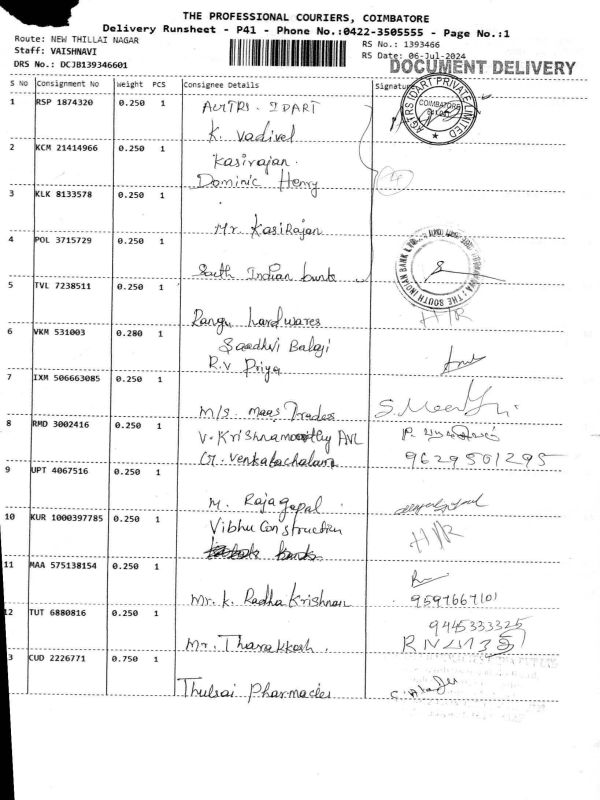 THE PROFESSIONAL COURIERS, COIMBATORE
Delivery Runsheet - P41 - Phone No.:0422-3505555 - Page No.:1
Route: NEW THILLAI NAGAR
Staff: VAISHNAVI
DRS No.: DCJB139346601
RS No.: 1393466
RS Date: 06-Jul-2024
DOCUMENT DELIVERY
S No Consignment No Weight PCS Consignee Details Signature
1 RSP 1874320 0.250 1
AGTRS IDART PRIVATE LIMITED
COIMBATORE
K. Vadivel
2 KCM 21414966 0.250 1 Kasirajan.
Dominic Henry
4
3 KLK 8133578 0.250 1
Mr. Kasirajan
4 POL 3715729 0.250 1
South Indian bank
THE SOUTH INDIAN BANK
5 TVL 7238511 0.250 1
Rangu hardwares H/R
6 VKM 531003 0.280 1 Balaji
R.V Priya
7 IXM 506663085 0.250 1
M/s. Maas Traders
8 RMD 3002416 0.250 1 V. Krishnamoorthy AVL
G. Venkatachalam 9629501295
9 UPT 4067516 0.250 1
M. Rajagopal
10 KUR 1000397785 0.250 1 Vibhu Construction H/R
11 MAA 575138154 0.250 1
Mr. K. Radha Krishnan 9597667101
12 TUT 6880816 0.250 1 9445333325
Mr. Tharakkosh.
3 CUD 2226771 0.750 1
Thulsai Pharmacies